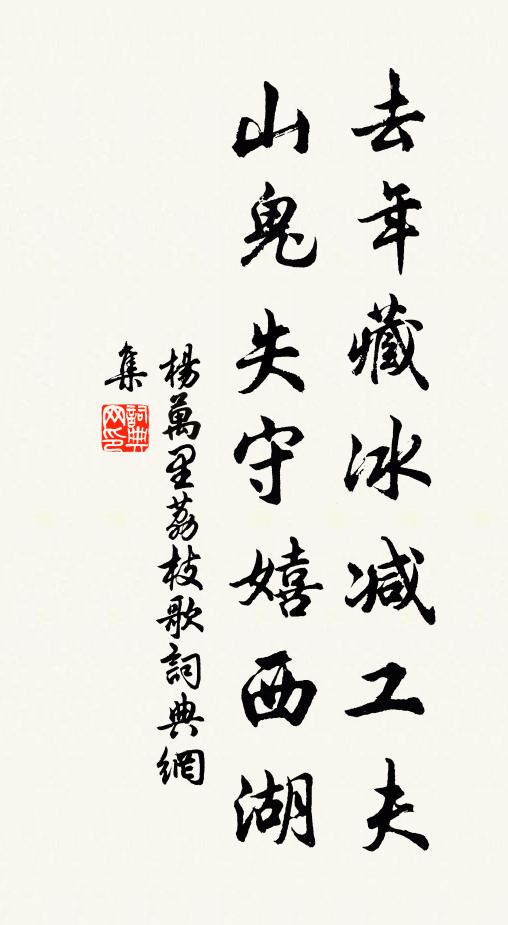 去年藏冰減工夫
山鬼失守嬉西湖
楊萬里荔枝歌詞典網
集
詞典网印